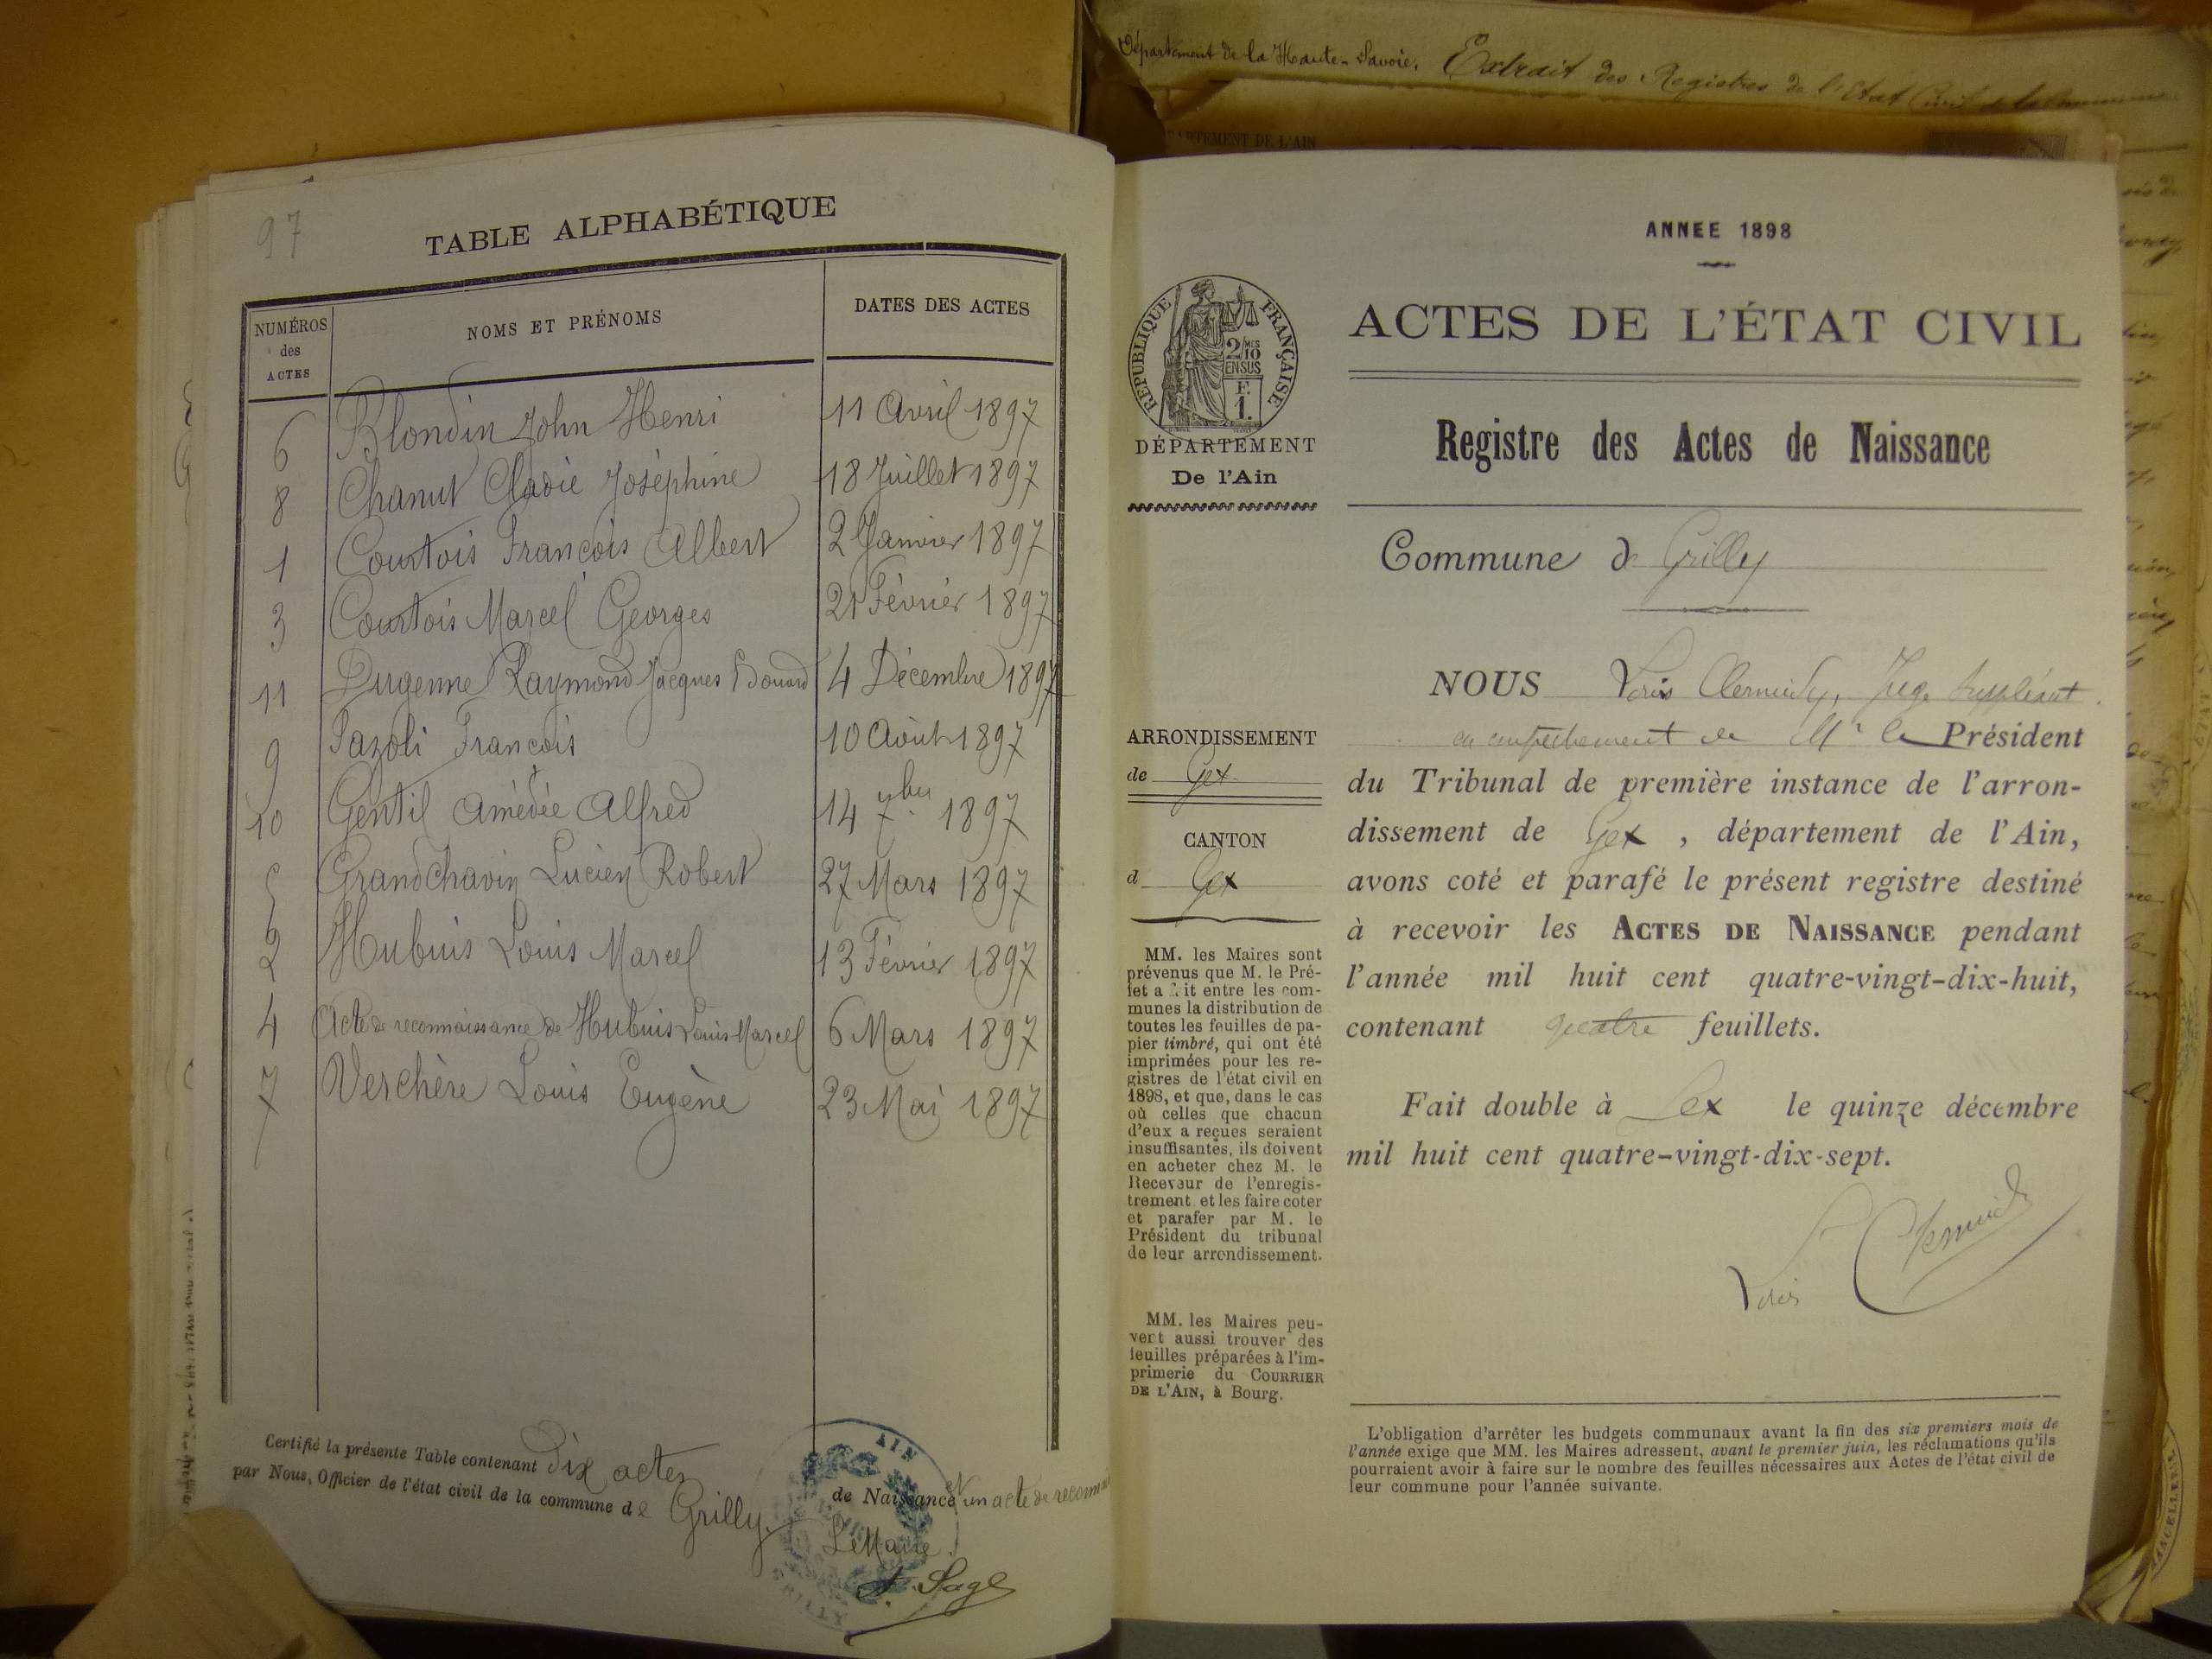 Département de la Haute-Savoie. Extrait des Registres de l'Etat Civil de la Commune
97
TABLE ALPHABÉTIQUE
NUMÉROS des ACTES
NOMS ET PRÉNOMS
DATES DES ACTES
6 Blondin John Henri 11 Avril 1897
8 Chanut Clavie Joséphine 18 Juillet 1897
1 Courtois François Albert 2 Janvier 1897
3 Courtois Marcel Georges 21 Février 1897
11 Dugenne Raymond Jacques Edouard 4 Décembre 1897
9 Fazoli François 10 Août 1897
10 Gentil Amédée Alfred 14 7bre 1897
5 Grandchavin Lucien Robert 27 Mars 1897
2 Hubuis Louis Marcel 13 Février 1897
4 Acte de reconnaissance de Hubuis Louis Marcel 6 Mars 1897
7 Verchère Louis Eugène 23 Mai 1897
Certifié la présente Table contenant dix actes de Naissance et un acte de reconn
par Nous, Officier de l'état civil de la commune de Grilly.
Le Maire
F. Sage
AIN
GRILLY
DÉPARTEMENT DE L'AIN
ANNEE 1898
RÉPUBLIQUE FRANÇAISE
2/10 MES
EN SUS
F.
1.
DÉPARTEMENT
De l'Ain
ACTES DE L'ÉTAT CIVIL
Registre des Actes de Naissance
Commune de Grilly
ARRONDISSEMENT
de Gex
CANTON
d Gex
MM. les Maires sont
prévenus que M. le Pré-
fet a fait entre les com-
munes la distribution de
toutes les feuilles de pa-
pier timbré, qui ont été
imprimées pour les re-
gistres de l'état civil en
1898, et que, dans le cas
où celles que chacun
d'eux a reçues seraient
insuffisantes, ils doivent
en acheter chez M. le
Receveur de l'enregis-
trement et les faire coter
et parafer par M. le
Président du tribunal
de leur arrondissement.
MM. les Maires peu-
vent aussi trouver des
feuilles préparées à l'im-
primerie du COURRIER
DE L'AIN, à Bourg.
NOUS Juge Suppléant
en empêchement de Mr le Président
du Tribunal de première instance de l'arron-
dissement de Gex , département de l'Ain,
avons coté et parafé le présent registre destiné
à recevoir les ACTES DE NAISSANCE pendant
l'année mil huit cent quatre-vingt-dix-huit,
contenant quatre feuillets.
Fait double à Gex le quinze décembre
mil huit cent quatre-vingt-dix-sept.
L'obligation d'arrêter les budgets communaux avant la fin des six premiers mois de
l'année exige que MM. les Maires adressent, avant le premier juin, les réclamations qu'ils
pourraient avoir à faire sur le nombre des feuilles nécessaires aux Actes de l'état civil de
leur commune pour l'année suivante.